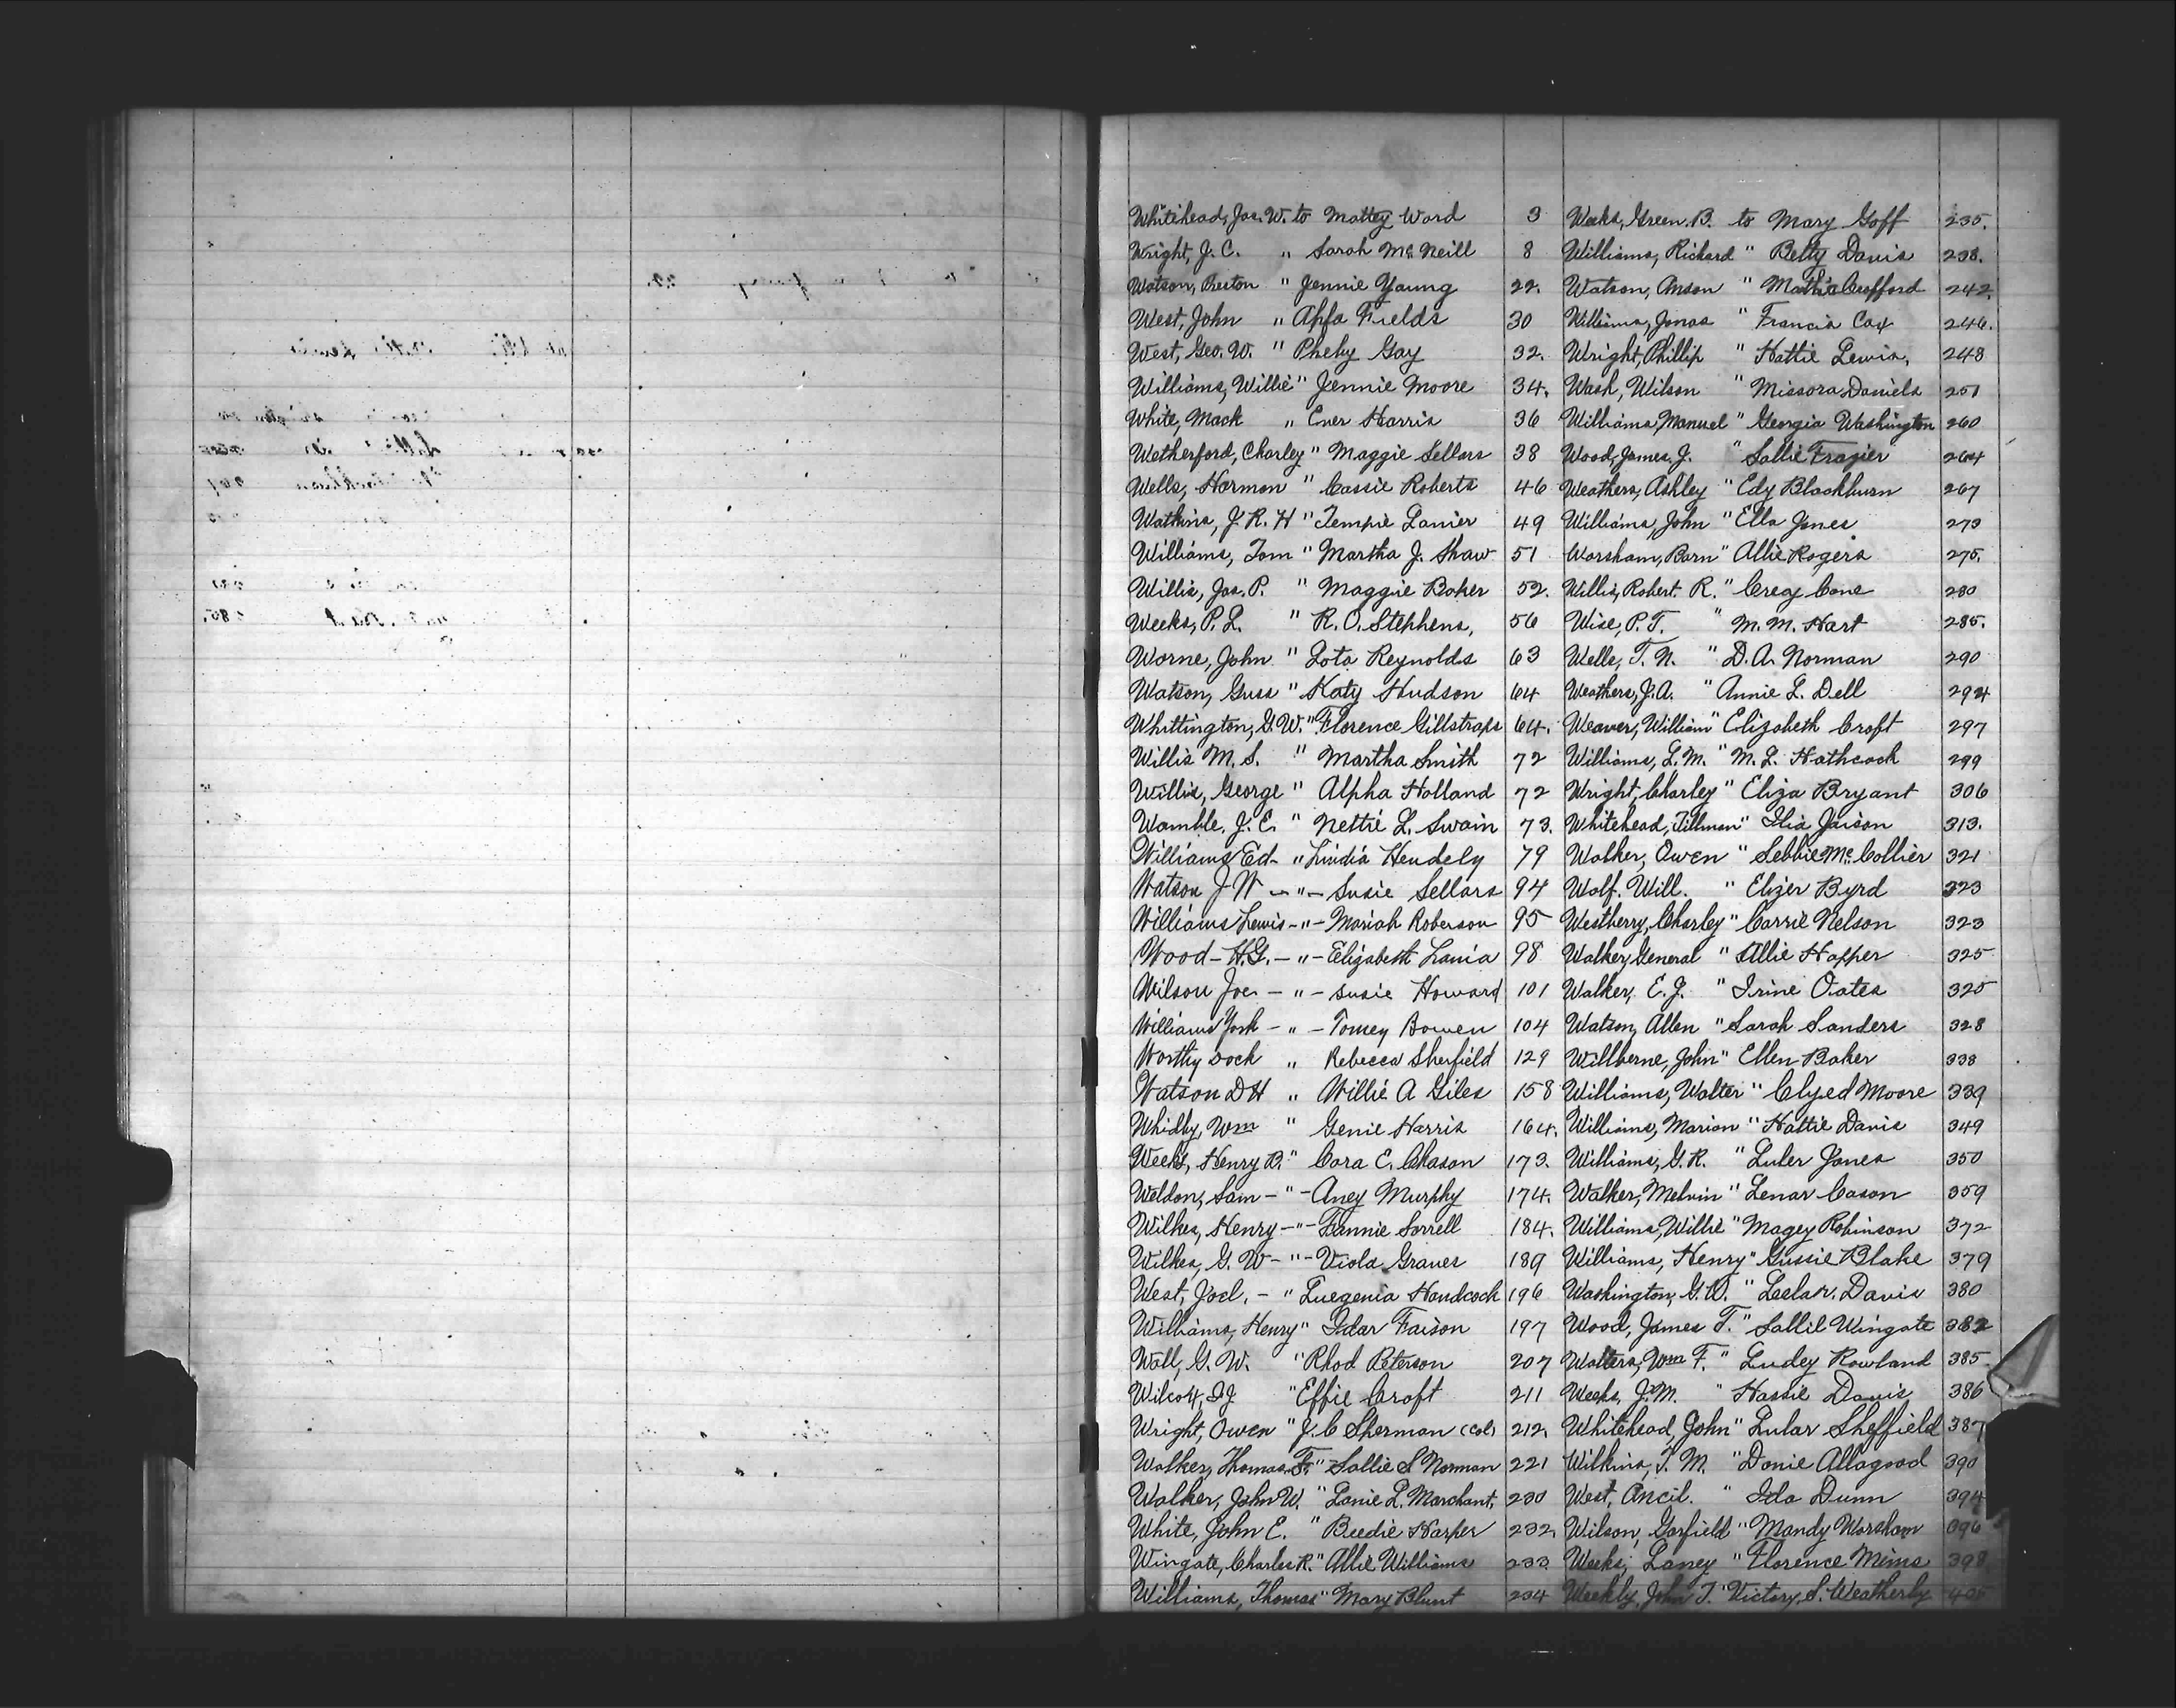 Whitehead, Jas. W. to Mattey Ward 3
Wright, J. C. " Sarah McNeill 8
Watson, Preston " Jennie Young 22.
West, John " Affa Fields 30
West, Geo. W. " Pheby Gay 32.
Williams, Willie " Jennie Moore 34.
White, Mack " Ener Harris 36
Wetherford, Charley " Maggie Sellars 38
Wells, Harmon " Cassie Roberts 46
Watkins, J. R. H " Tempie Lanier 49
Williams, Tom " Martha J. Shaw 51
Willis, Jas. P. " Maggie Baker 52.
Weeks, P. L. " R. O. Stephens, 56
Worne, John " Lota Reynolds 63
Watson, Guss " Katy Hudson 64
Whittington, G. W. " Florence Gillstraps 64.
Willis M. S. " Martha Smith 72
Willis, George " Alpha Holland 72
Wamble, J. E. " Nettie L. Swain 73.
Williams Ed- " Lindia Hendely 79
Watson J W - " - Susie Sellars 94
Williams Lewis - " - Mariah Roberson 95
Wood - H. G. - " - Elizabeth Lania 98
Wilson Joe - " - Susie Howard 101
Williams York - " - Tomey Bowen 104
Worthy Dock " Rebecca Sherfield 129
Watson D H " Willie A Giles 158
Whidby, Wm " Genie Harris 164.
Weeks, Henry B. " Cora E. Chason 173.
Weldon, Sam - " - Aney Murphy 174.
Wilkes, Henry - " - Fannie Sorrell 184.
Wilkes, G. W - " - Viola Graves 189
West, Joel. - " Luegenia Handcock 196
Williams, Henry " Idar Faison 197
Wall, G. W. " Rhod Peterson 207
Wilcox, I J " Effie Croft 211
Wright, Owen " J. C Sherman (Col) 212.
Walker, Thomas F. " Sallie S Norman 221
Walker, John W. " Lanie L. Marchant. 230
White, John E. " Beedie Harper 232.
Wingate, Charles R. " Allie Williams 233
Williams, Thomas " Mary Blunt 234
Weeks, Green. B. to Mary Goff 235.
Williams, Richard " Betty Davis 238.
Watson, Anson " Crofford 242.
Williams, Jonas " Francis Cox 246.
Wright, Phillip " Hattie Lewis, 248
Wash, Wilson " Missora Daniels 251
Williams, Manuel " Georgia Washington 260
Wood, James. J. " Sallie Frazier 264
Weathers, Ashley " Edy Blackburn 267
Williams, John " Ella Jones 273
Worsham, Barn " Allie Rogers 275.
Willis, Robert. R. " Creay Cone 280
Wise, P. T. " M. M. Hart 285.
Wells, T. N. " D. A. Norman 290
Weathers, J. A. " Annie L. Dell 294
Weaver, William " Elizabeth Croft 297
Williams, L. M. " M. L. Hathcock 299
Wright, Charley " Eliza Bryant 306
Whitehead, Tillman " Ilia Jaison 313.
Walker, Owen " Sebbie McCollier 321
Wolf. Will. " Elizer Byrd 323
Westberry, Charley " Carrie Nelson 323
Walker, General " Allie Happer 325
Walker, E. J. " Irine Oates 325
Watson, Allen " Sarah Sanders 328
Willberne, John " Ellen Baker 338
Williams, Walter " Clyed Moore 339
Williams, Marion " Hattie Davis 349
Williams, G. R. " Luler Jones 350
Walker, Melvin " Lenar Cason 359
Williams, Willie " Magey Robinson 372
Williams, Henry " Gussie Blake 379
Washington, G. W. " Leelar. Davis 380
Wood, James T. " Sallie Wingate 382
Walters, Wm F. " Ludey Rowland 385
Weeks, J. M. " Hassie Davis 386
Whitehead, John " Lular Sheffield 387
Wilkins, T. M. " Donie Allagood 390
West, Ancil. " Ida Dunn 394
Wilson, Garfield " Mandy Worsham 396
Weeks, Laney " Florence Mims 398
Weekly, John T. " Victory. S. Weatherly